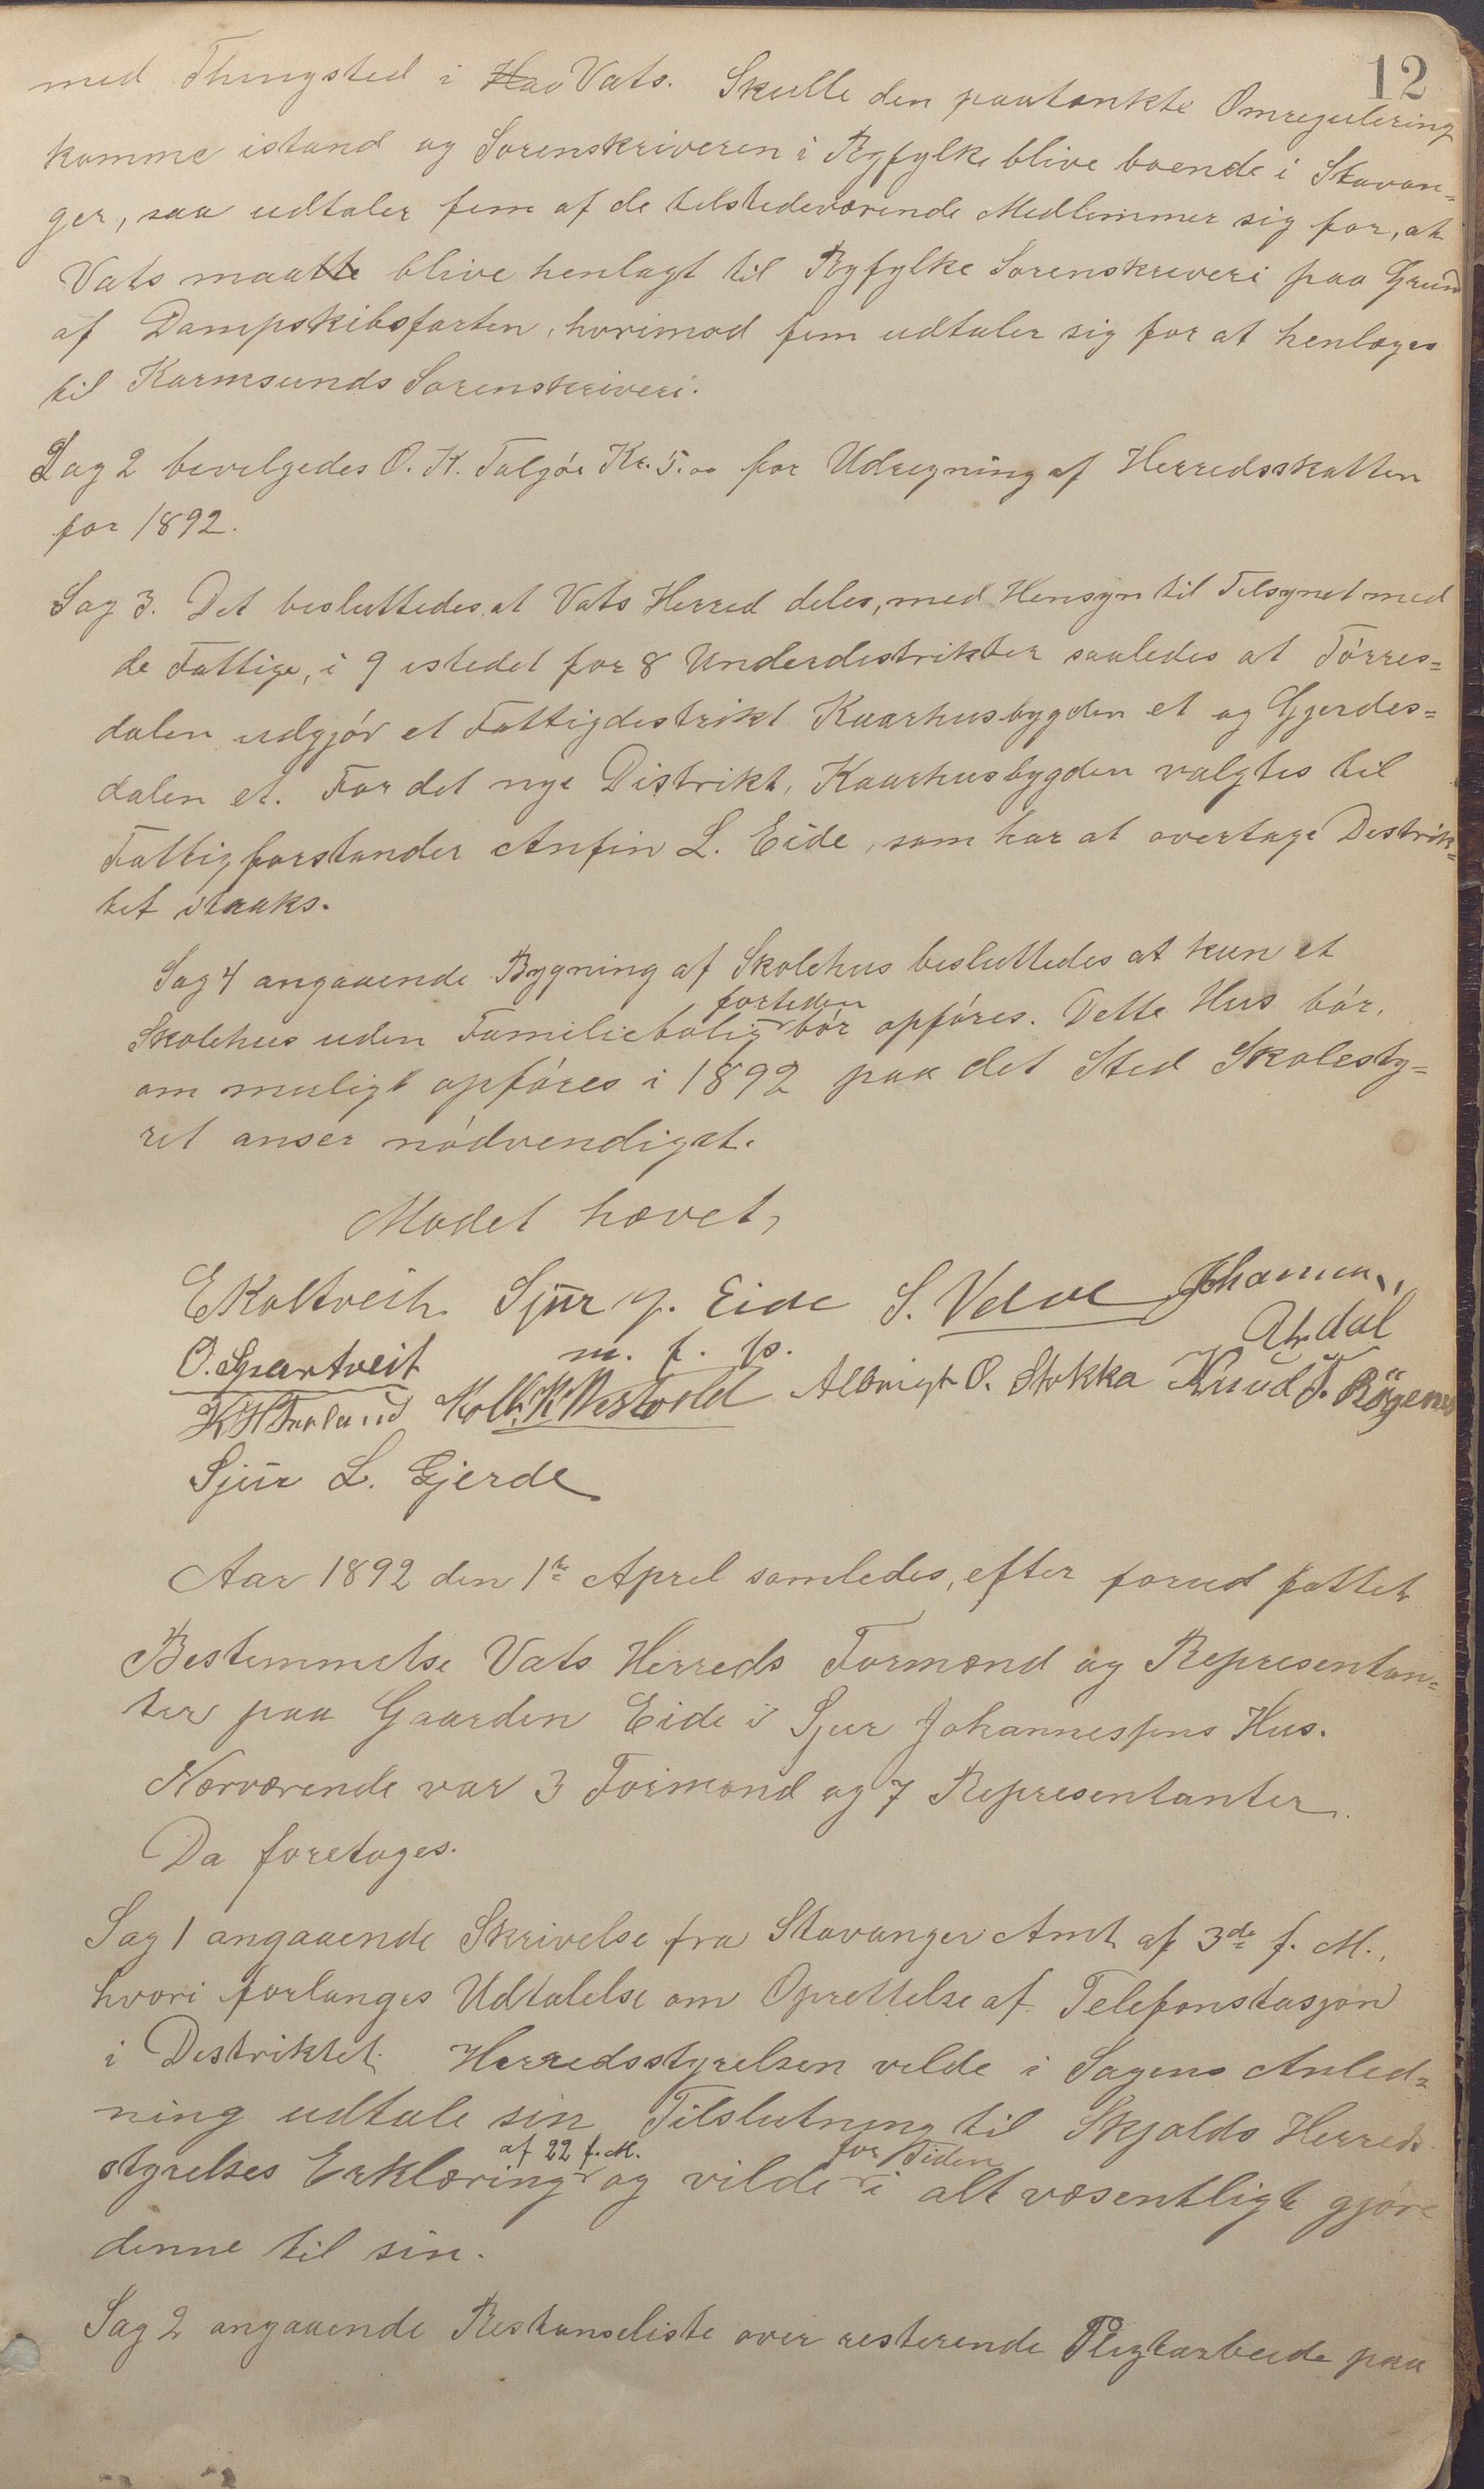 12
med Thingsted i Hav Vats. Skulle den paatænkte Omregulering
komme istand og Sorenskriveren i Ryfylke blive boende i Stavan-
ger, saa udtaler fem af de tilstedeværende Medlemmer sig for, at
Vats maatte blive henlagt til Ryfylke Sorenskriveri paa Grund
af Dampskibsfarten, hvorimod fem udtaler sig for at henlæges
til Karmsunds Sorenskriveri.
Sag 2 bevilgedes O. K. Falgór Kr. 5.00 for Udregning af Herredsskatten
for 1892.
Sag 3. Det besluttedes, at Vats Herred deles, med Hensyn til Tilsynet med
de Fattige, i 9 istedet for 8 Underdistrikter saaledes at Tórres=
dalen udgjór et Fattigdistrikt Kaarhusbygden et og Gjerdes=
dalen et. For det nye Distrikt, Kaarhusbygden valgtes til
Fattigforstander Anfin L. Eide, som har at overtage Distrik=
tet straks.
Sag 4 angaaende Bygning af Skolehus besluttedes at kun et
Skolehus uden Familiebolig fortiden bór opfóres. Dette Hus bór,
om muligt opfóres i 1892 paa det Sted Skolesty=
ret anser nódvendigst.
Mødet hævet,
E Koltveit. Sjur J. Eide S. Velde Johannes
m. f. p. Øhrdal
O. Svartveit
K H Førland K. Vestvold Albrigt O. Stokka Knud T. Rögenes
Sjur L. Gjerde
Aar 1892 den 1ste April samledes, efter forud fattet
Bestemmelse Vats Herreds Formænd og Representan=
ter paa Gaarden Eide i Sjur Johannessens Hus.
Nærværende var 3 Formænd og 7 Representanter.
Da foretoges.
Sag 1 angaaende Skrivelse fra Stavanger Amt af 3de f. M.,
hvori forlanges Udtalelse om Oprettelse af Telefonstasjon
i Distriktet. Herredsstyrelsen vilde i Sagens Anled=
ning udtale sin Tilslutning til Skjolds Herreds
styrelses Erklæring af 22 f. M. og vilde for Tiden i alt væsentligt gjøre
denne til sin.
Sag 2 angaaende Restanseliste over resterende Pligtarbeide paa